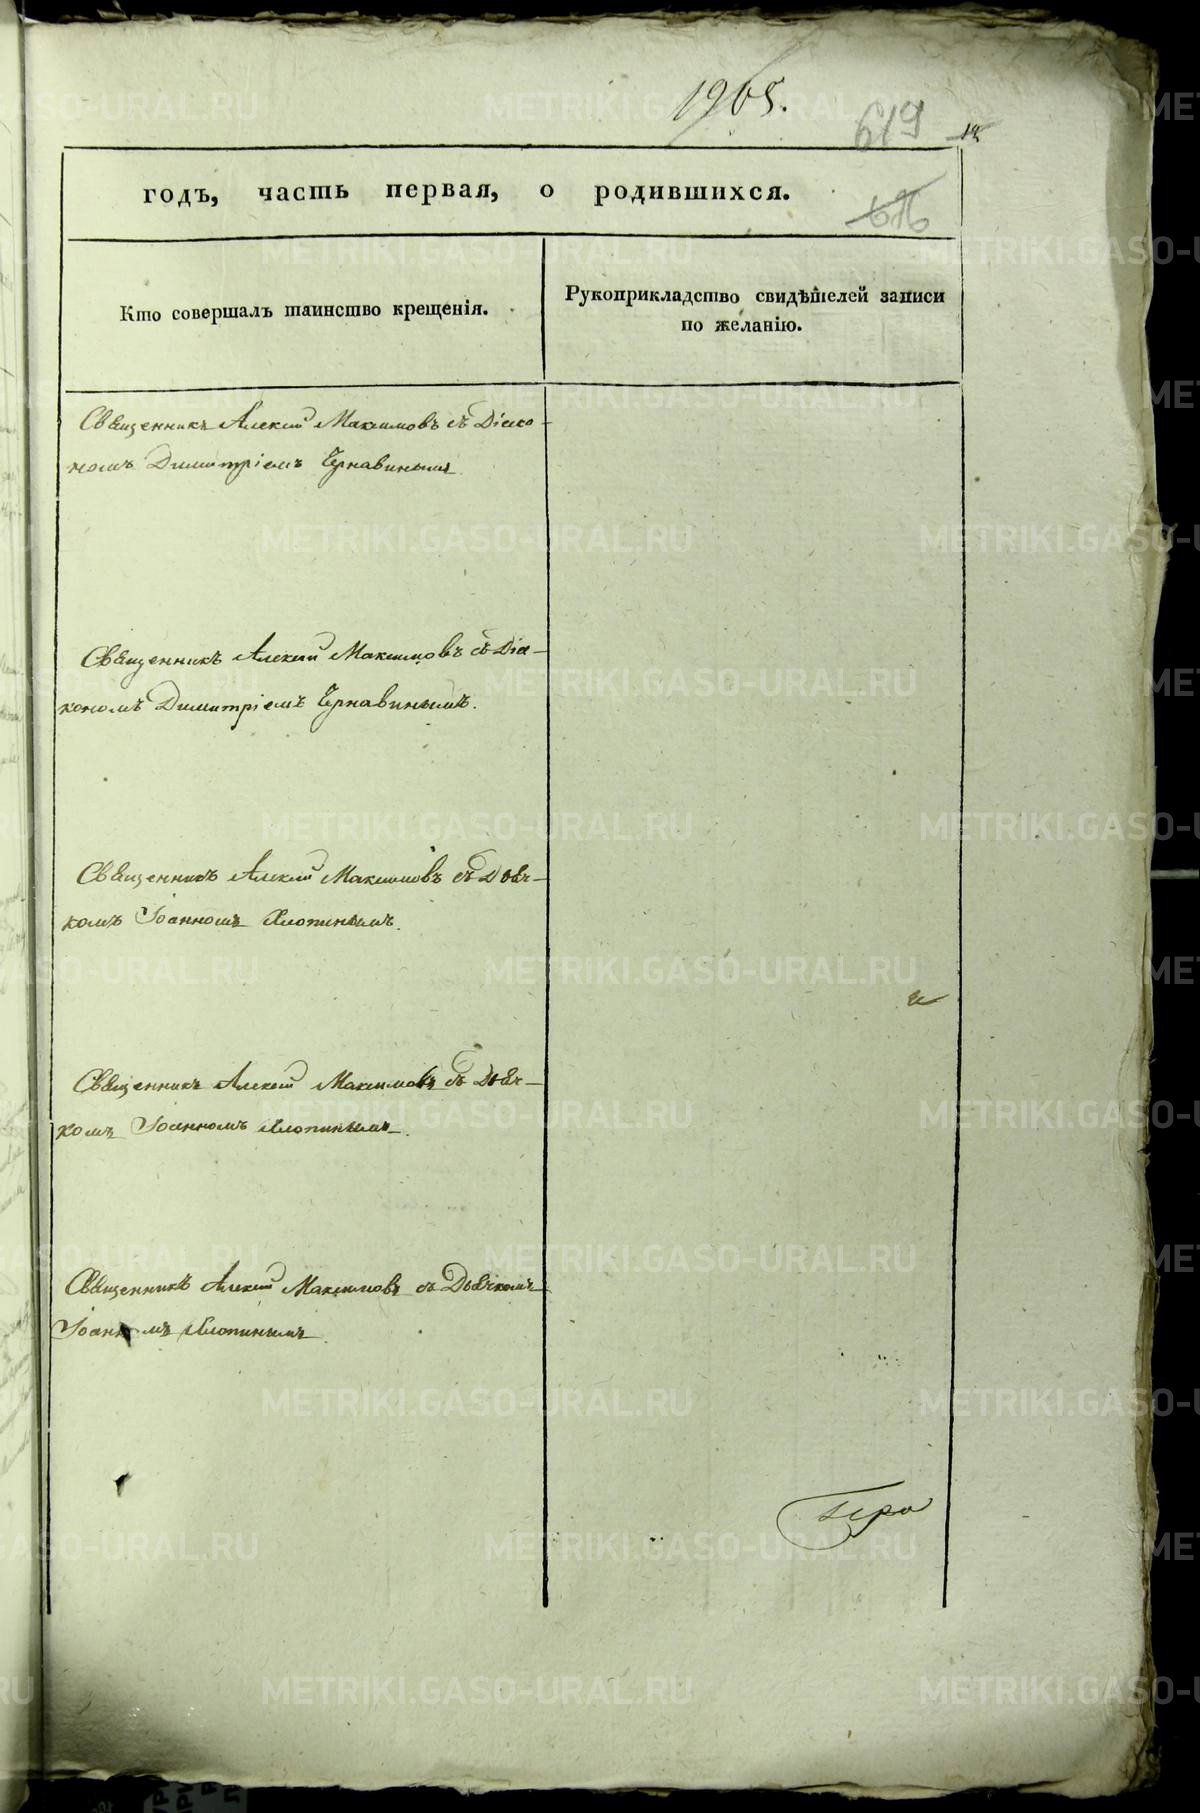 1965.
619
годъ, часть первая, о родившихся.
Кто совершалъ таинство крещенія.
Рукоприкладство свидѣтелей записи
по желанію.
Священникъ Алексій Максимовъ съ Діако-
номъ Димитріемъ Чернавинымъ
Священникъ Алексій Максимовъ съ Діа-
кономъ Димитріемъ Чернавинымъ.
Священникъ Алексій Максимовъ съ Дьяч-
комъ Іоанномъ Хлопинымъ.
Священникъ Алексій Максимовъ съ Дьяч-
комъ Іоанномъ Хлопинымъ.
Священникъ Алексій Максимовъ съ Дьячкомъ
Іоанномъ Хлопинымъ.
METRIKI.GASO-URAL.RU